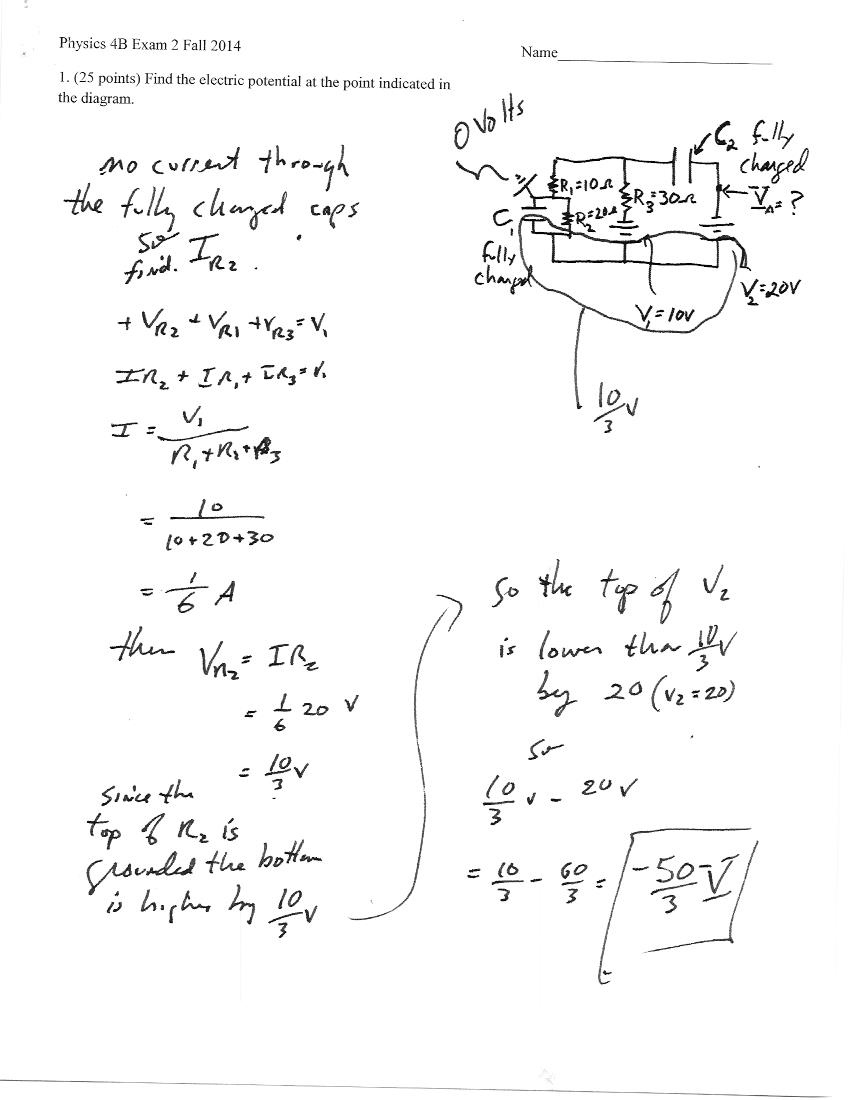 Physics 4B Exam 2 Fall 2014
Name
1. (25 points) Find the electric potential at the point indicated in
the diagram.
0 Volts
C₂ fully
charged
R₁=10Ω
R₃=30Ω
V_A = ?
C₁
R₂=20Ω
fully
charged
V₁=10V
V₂=20V
10/3 V
no current through
the fully charged caps
so
find. I_R2.
+ V_R2 + V_R1 + V_R3 = V₁
IR₂ + IR₁ + IR₃ = V₁
I = V₁/(R₁+R₂+R₃)
= 10/(10+20+30)
= 1/6 A
then V_R2 = IR₂
= 1/6 20 V
= 10/3 V
Since the
top of R₂ is
grounded the bottom
is higher by 10/3 V
So the top of V₂
is lower than 10/3 V
by 20 (V₂=20)
so
10/3 V - 20V
= 10/3 - 60/3 = -50/3 V